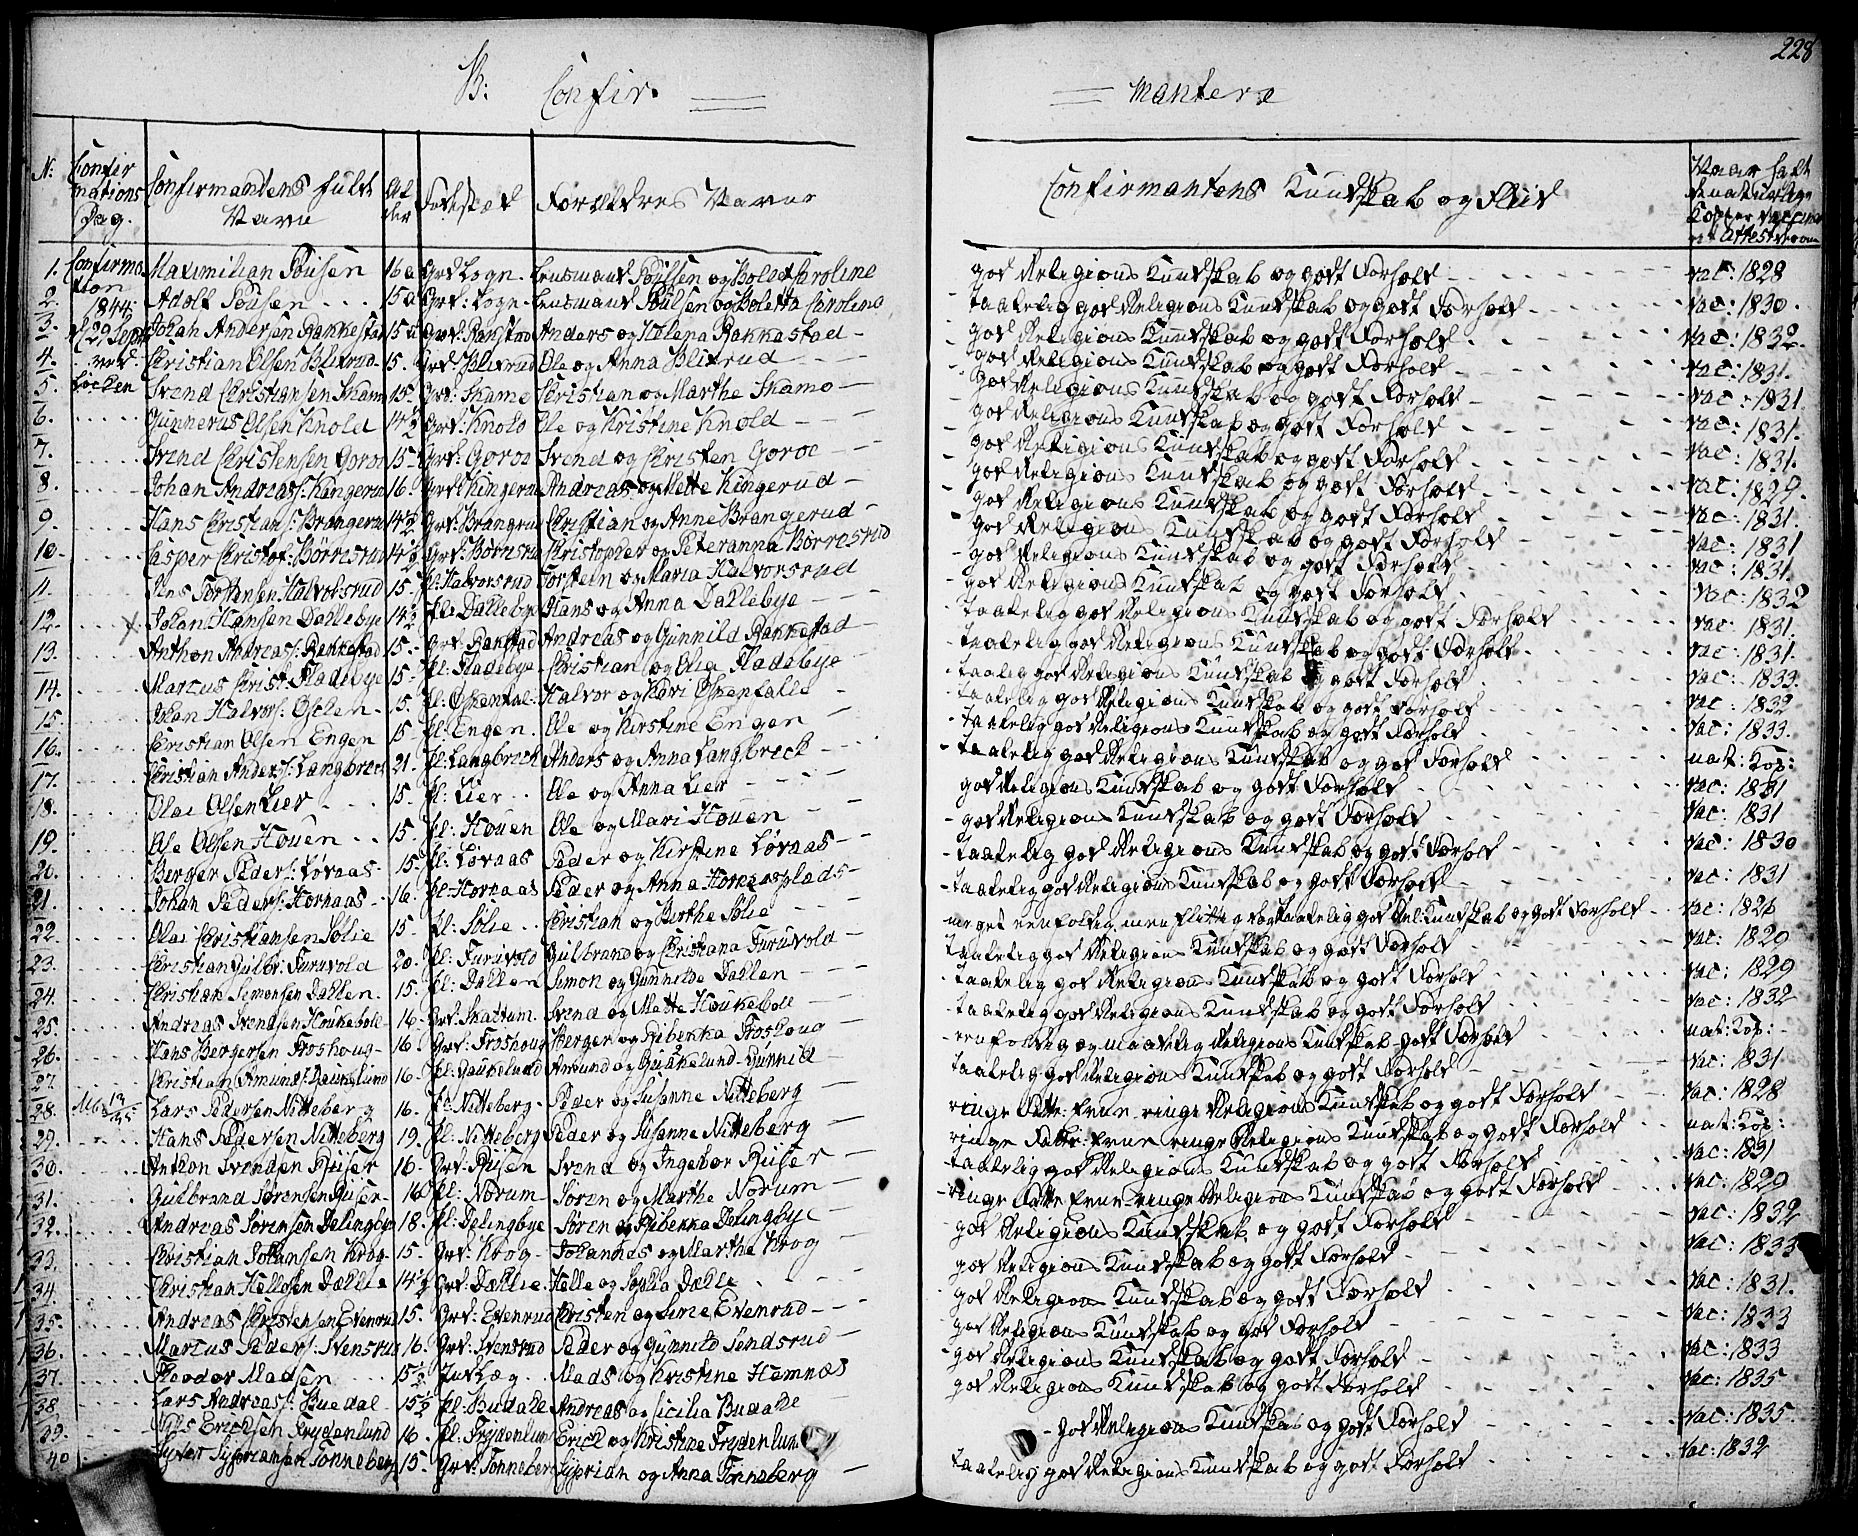 228
B: Confir= =mantere
N: Confirmations Dag. Confirmandens fulde Navn Alder Fødested Forældres Navne Confirmantens Kundskab og Fliid Naar havt de naturlige Kopper
Confirmation 1844 d 29 Septr ved
1. Maximilian Poulsen 16 a Grd Sogn. Lensmand Poulsen og Bolet Caroline god Religions Kundskab og godt Forhold vac: 1828
2. Adolf Poulsen 15 a Grd: Sogn. Lensmand Poulsen og Boletta Caroline Taalelig god Religions Kundskab og godt Forhold vac: 1830.
3. Johan Andersen Rankestad 15 a Grd: Rakstad Anders og Helena Rakkestad god Religions Kundskab og godt Forhold vac: 1832.
4. Christian Olsen Blixrud 15. Grd: Blixrud Ole og Anna Blixrud god Religions Kundskab og godt Forhold vac: 1831.
5. Svend Christiansen Skamo 15. Grd: Skamo Christian og Marthe Skamo god Religions Kundskab og godt Forhold vac: 1831.
6. Gunnerus Olsen Knold 14½ Grd: Knold Ole og Kristine Knold god Religions Kundskab og godt Forhold vac: 1831.
7. Svend Christensen Goroe 15 Grd: Goroe Svend og Christen Goroe god Religions Kundskab og godt Forhold vac: 1831.
8. Johan Andreas: Kingerud 16. Grd: Kingerud Andreas og Mette Kingerud god Religions Kundskab og godt Forhold vac: 1829.
9. Hans Christians: Brangerud 14½ Grd: Brangerud Christian og Anne Brangerud god Religions Kundskab og godt Forhold vac: 1831.
10. Casper Christof: Børresrud 14½ Grd: Børresrud Christopher og Peteranna Børresrud god Religions Kundskab og godt Forhold vac: 1831
11. Jens Torstensen Halvorsrud 15 pl: Halvorsrud Torstein og Maria Halvorsrud god Religions Kundskab og godt Forhold vac: 1831.
12. x Johan Hansen Dallebye 14½ pl: Dallebye Hans og Anna Dallebye god Religions Kundskab og godt Forhold vac: 1832
13. Anthon Andreas: Renkestad 15. Grd Rakstad Andreas og Gunnild Rakkestad Taalelig god Religions Kundskab og godt Forhold vac: 1831.
14. Marcus Christ: Fladebye 15 pl: Fladebye Christian og Olia Fladebye Taalelig god Religions Kundskab og godt Forhold vac: 1831.
15. Johan Halvors: 15. Halvor og Kari Taalelig god Religions Kundskab og godt Forhold vac: 1833.
16. Christian Olsen Engen 15 pl: Engen. Ole og Kirstine Engen Taalelig god Religions Kundskab og godt Forhold vac: 1833
17. Christian Anders: Langbreck 21. pl: Langbreck Anders og Anna Langbreck Taalelig god Religions Kundskab og godt Forhold vac: 1833.
18. Olai Olsen Lier 15. pl: Lier Ole og Anna Lier Taalelig god Religions Kundskab og god Forhold nat: Kop:
19. Ole Olsen Houen 15. pl: Houen Ole og Mari Houen god Religions Kundskab og godt Forhold vac: 1831
20. Berger Peders: Løvaas 15 pl: Løvaas Peder og Kirstine Løvaas god Religions Kundskab og godt Forhold vac: 1831
21. Johan Peders: Hornaas 16. pl: Hornaas Peder og Anna Hornaasplads Taalelig god Religions Kundskab og godt Forhold vac: 1830
22. Olai Christiansen Sølie 15 pl: Sølie Christian og Berthe Sølie Taalelig god Religions Kundskab og godt Forhold vac: 1831
23. Christian Gulbr: Furuvold 20. pl: Furuvold Gulbrand og Christiana Furuvold meget eenfoldig men flittig og taalelig god Rel: Kundskab og godt Forhold vac: 1826
24. Christian Simensen Dallen 15. pl: Dallen Simon og Gunnilde Dallen Taalelig god Religions Kundskab og godt Forhold vac: 1829
25. Andreas Svendsen Houkeboll 16. Grd: Skattum Svend og Matte Houkeboll Taalelig god Religions Kundskab og godt Forhold vac: 1829
26. Hans Bergersen Froshoug 16. Grd: Froshoug Berger og Ribekka Froshoug Taalelig god Religions Kundskab og godt Forhold vac: 1832
27. Christian Amunds: Gaukelund 16. pl: Gaukelund Amund og Gunnild eenfoldig og maadelig Religions Kundskab godt Forhold nat: Kop:
28. Lars Pedersen Nitteberg 16. pl: Nitteberg Peder og Susanne Nitteberg Taalelig god Religions Kundskab og godt Forhold vac: 1831
29. Hans Pedersen Nitteberg 19. pl: Nitteberg Peder og Susanne Nitteberg ringe Fatte-Evne ringe Religions Kundskab og godt Forhold vac: 1828
30. Anthon Svendsen Riiser 16. Grd: Riisen Svend og Ingebor Riiser ringe Fatte-Evne ringe Religions Kundskab og godt Forhold nat: Kop:
31. Gulbrand Sørensen Riiser 16 pl: Norum Søren og Marthe Norum Taalelig god Religions Kundskab og godt Forhold vac: 1831
32. Andreas Sørensen Delingbye 18. pl: Delingbye Søren og Ribekka Delingbye ringe Fatte Evne ringe Religions Kundskab og godt Forhold vac: 1829
33. Christian Johansen Krog 15. Grd: Krog Johannes og Marthe Krog god Religions Kundskab og godt Forhold vac: 1832
34. Christian Hellesen Dæhlie 14½ Grd: Dæhlie. Helle og Sophia Dæhlie god Religions Kundskab og godt Forhold vac: 1833
35. Andreas Christensen Evenrud 15. Grd: Evenrud Christen og Sirie Evenrud god Religions Kundskab og godt Forhold vac: 1831.
36. Marcus Peders: Svensrud 16. Grd: Svensrud Peder og Gunnild Sundsrud god Religions Kundskab og god Forhold vac: 1833
37. Theodor Madsen 15½ Mads og Kristine Hemnæs god Religions Kundskab og godt Forhold vac: 1833
38. Lars Andreas: Buedal 15½ pl: Budahl Andreas og Cicilia Budahl god Religions Kundskab og godt Forhold vac: 1835
39. Nils Erichsen Frydenlund 16. pl: Frydenlund Erich og Kristine Frydenlund god Religions Kundskab og godt Forhold vac: 1835.
40 Syver Sypriansen Tonneberg 15. Grd: Tonneberg Syprian og Anna Tonneberg Taalelig god Religions Kundskab og godt Forhold vac: 1832